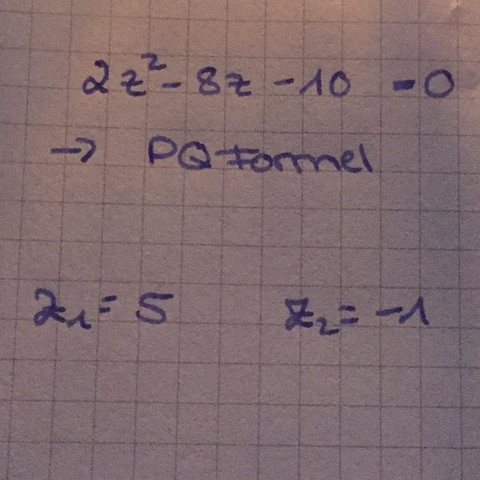 2z² - 8z - 10 = 0
→ PQ Formel
z₁ = 5 z₂ = -1